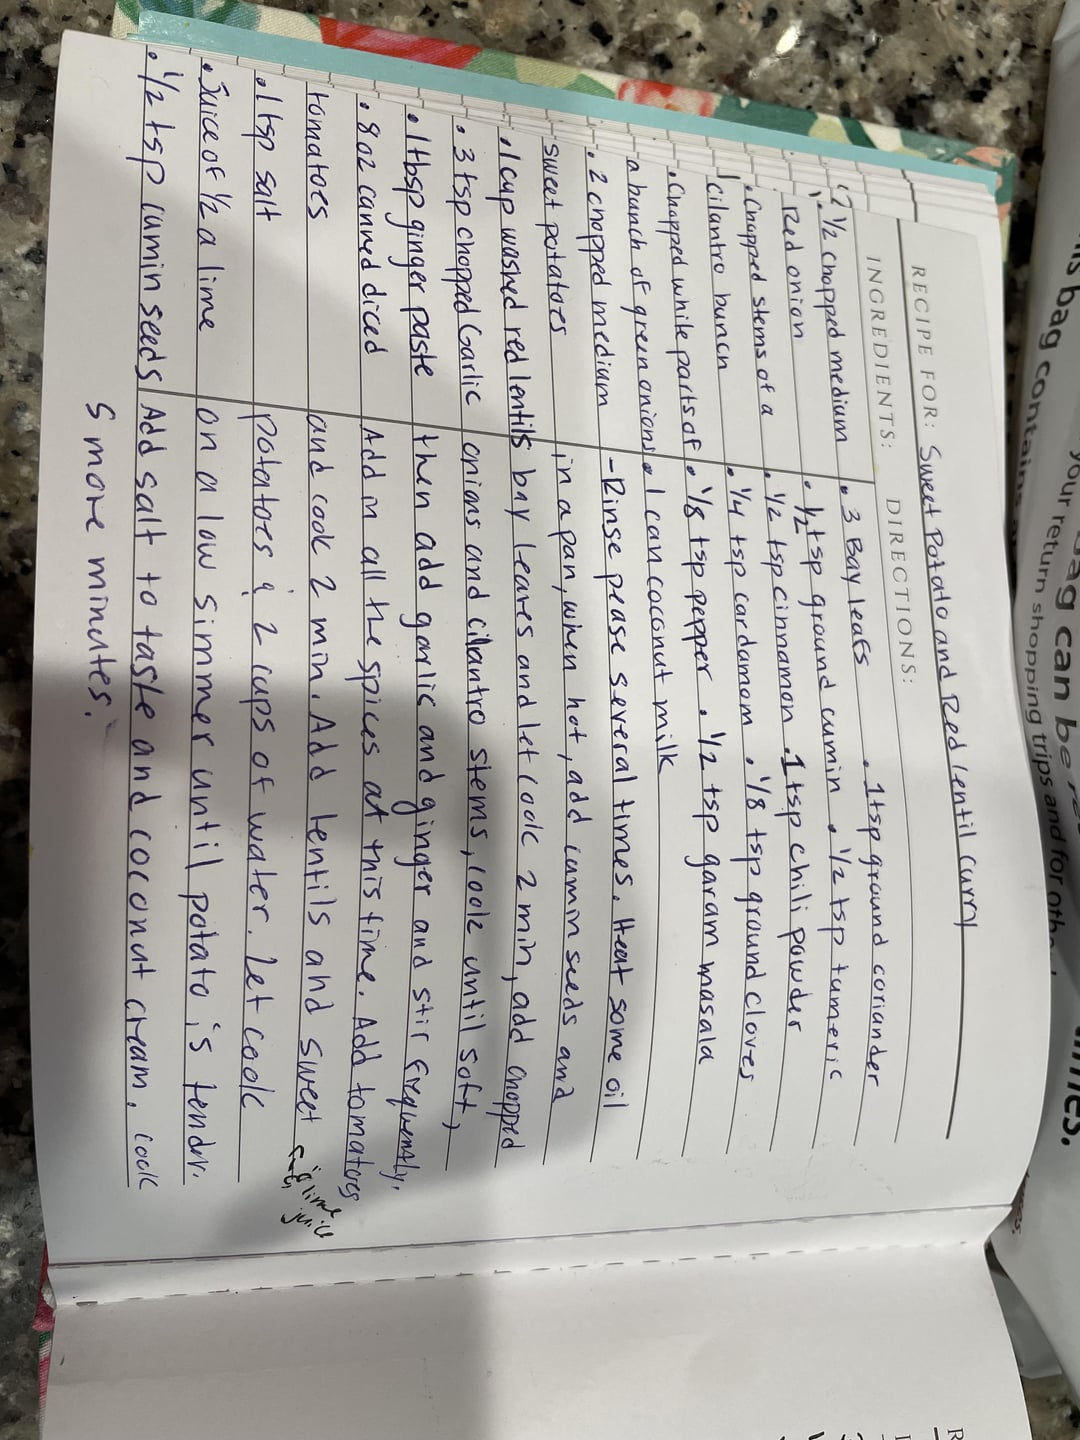 RECIPE FOR: Sweet Potato and Red lentil curry
INGREDIENTS: DIRECTIONS:
1/2 chopped medium
Red onion
• Chopped stems of a
cilantro bunch
• Chopped white parts of
a bunch of green onions
• 2 chopped medium
sweet potatoes
• 1 cup washed red lentils
• 3 tsp chopped Garlic
• 1 tbsp ginger paste
• 8 oz canned diced
tomatoes
• 1 tsp salt
• Juice of 1/2 a lime
• 1/2 tsp cumin seeds
• 3 Bay leafs • 1 tsp ground coriander
• 1/2 tsp ground cumin • 1/2 tsp tumeric
• 1/2 tsp cinnamon • 1 tsp chili powder
• 1/4 tsp cardamom • 1/8 tsp ground cloves
• 1/8 tsp pepper • 1/2 tsp garam masala
• 1 can coconut milk
- Rinse pease several times. Heat some oil
in a pan, when hot, add cumin seeds and
bay leaves and let cook 2 min, add chopped
onions and cilantro stems, cook until soft,
then add garlic and ginger and stir frequently.
Add in all the spices at this time. Add tomatoes
and cook 2 min. Add lentils and sweet
& lime juice
potatoes & 2 cups of water. Let cook
on a low simmer until potato is tender.
Add salt to taste and coconut cream. cook
5 more minutes.
your return shopping trips and for oth
bag contains
bag can be re